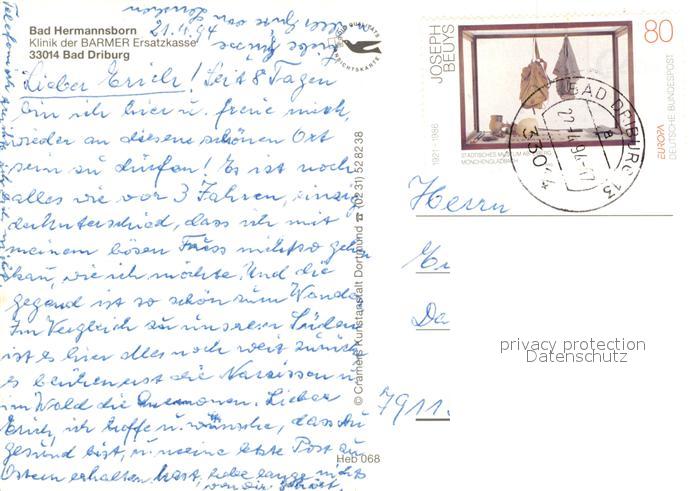 Bad Hermannsborn
Klinik der BARMER Ersatzkasse
33014 Bad Driburg
21.4.94
Lieber Erich! Seit 8 Tagen
bin ich hier u. freue mich,
wieder an diesem schönen Ort
sein zu dürfen! Es ist noch
alles wie vor 3 Jahren, einzig
der Unterschied, dass ich mit
meinem bösen Fuss nicht so gehen
kan, wie ich möchte. Und die
gegend ist so schön zum Wandern
Im Vergleich zu unserem Süden
ist es hier alles noch weit zurück
es blühen erst die Narzissen u.
im Wald die Anemonen. Lieber
Erich, ich hoffe u. wünsche, dass du
gesund bist, u. meine letzte Post an
Ostern erhalten hast, habe lange nichts
von dir gehört.
© Cramers Kunstanstalt Dortmund ☎ (0231) 528238
Heb 068
JOSEPH
BEUYS
1921 - 1986
80
STÄDTISCHES MUSEUM
MÖNCHENGLADBACH
EUROPA
DEUTSCHE BUNDESPOST
BAD DRIBURG 13
33014
Herrn
7911.
privacy protection
Datenschutz